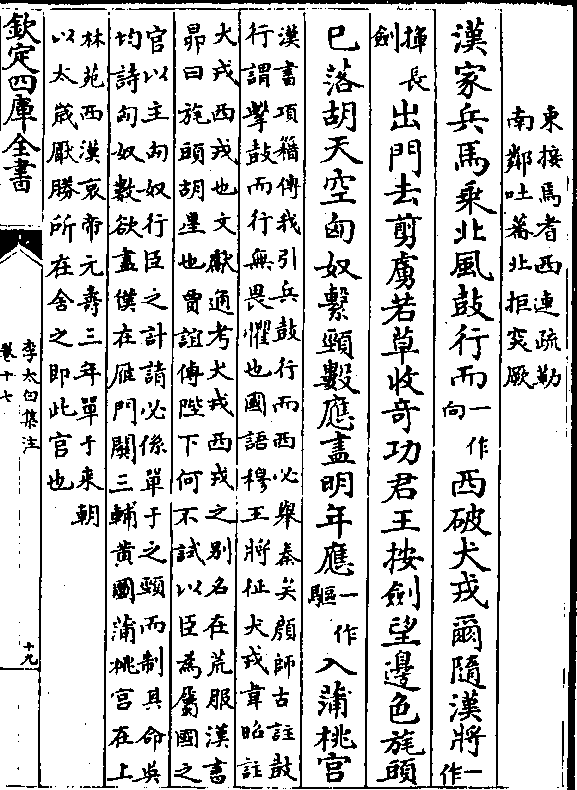 東接焉耆西連疏勒
南鄰吐蕃北拒突厥
漢家兵馬乘北風鼓行而一作向西破犬戎爾隨漢將一作
揮長劍出門去剪虜若草收奇功君王按劍望邊色旄頭
已落胡天空匈奴繫頸數應盡明年應一作驅入蒲桃宮
漢書項籍傳我引兵鼓行而西必舉秦矣顏師古註鼓
行謂擊鼓而行無畏懼也國語穆王將征犬戎韋昭註
犬戎西戎也文獻通考犬戎西戎之别名在荒服漢書
昴曰旄頭胡星也賈誼傳陛下何不試以臣為屬國之
官以主匈奴行臣之計請必係單于之頸而制其命吳
均詩匈奴數欲盡僕在雁門關三輔黃圖蒲桃宮在上
林苑西漢哀帝元壽三年單于來朝
以太歲厭勝所在舍之即此宮也
欽定四庫全書
李太白集注
卷十七
十九